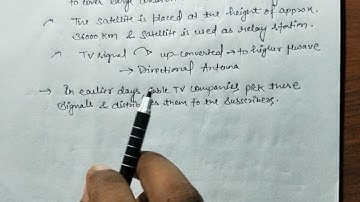 to cover large
The satellite is placed at the height of approx.
36000 KM & Satellite is used as relay station.
TV signal up-converted → to higher μwave
→ Directional Antenna
→ In earlier days cable TV companies pick these
signals & distributes them to the subscribers.